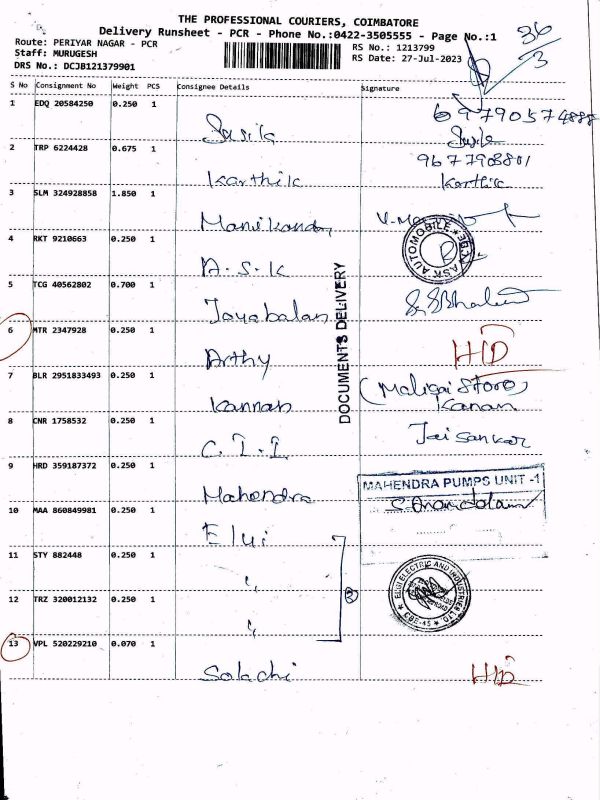 THE PROFESSIONAL COURIERS, COIMBATORE
Delivery Runsheet - PCR - Phone No.:0422-3505555 - Page No.:1
36/3
Route: PERIYAR NAGAR - PCR
RS No.: 1213799
Staff: MURUGESH
RS Date: 27-Jul-2023
DRS No.: DCJB121379901
S No Consignment No Weight PCS Consignee Details Signature
1 EDQ 20584250 0.250 1
Susila
2 TRP 6224428 0.675 1
9677908801
Karthik Karthik
3 SLM 324928858 1.850 1
Manikandn
4 RKT 9210663 0.250 1
A.S.K
ASK AUTOMOBILE
5 TCG 40562802 0.700 1
Jayabalan
DOCUMENTS DELIVERY
6 MTR 2347928 0.250 1
Arthy HID
7 BLR 2951833493 0.250 1
(Maligai Store)
Kannan Kanan
8 CNR 1758532 0.250 1
Jaisankar
C.I.I
9 HRD 359187372 0.250 1
MAHENDRA PUMPS UNIT -1
Mahendra
10 MAA 860849981 0.250 1
Elui
11 STY 882448 0.250 1
"
ELGI ELECTRIC AND INDUSTRIES LTD
CBE-45
12 TRZ 320012132 0.250 1
3
"
13 VPL 520229210 0.070 1
Salachi HID